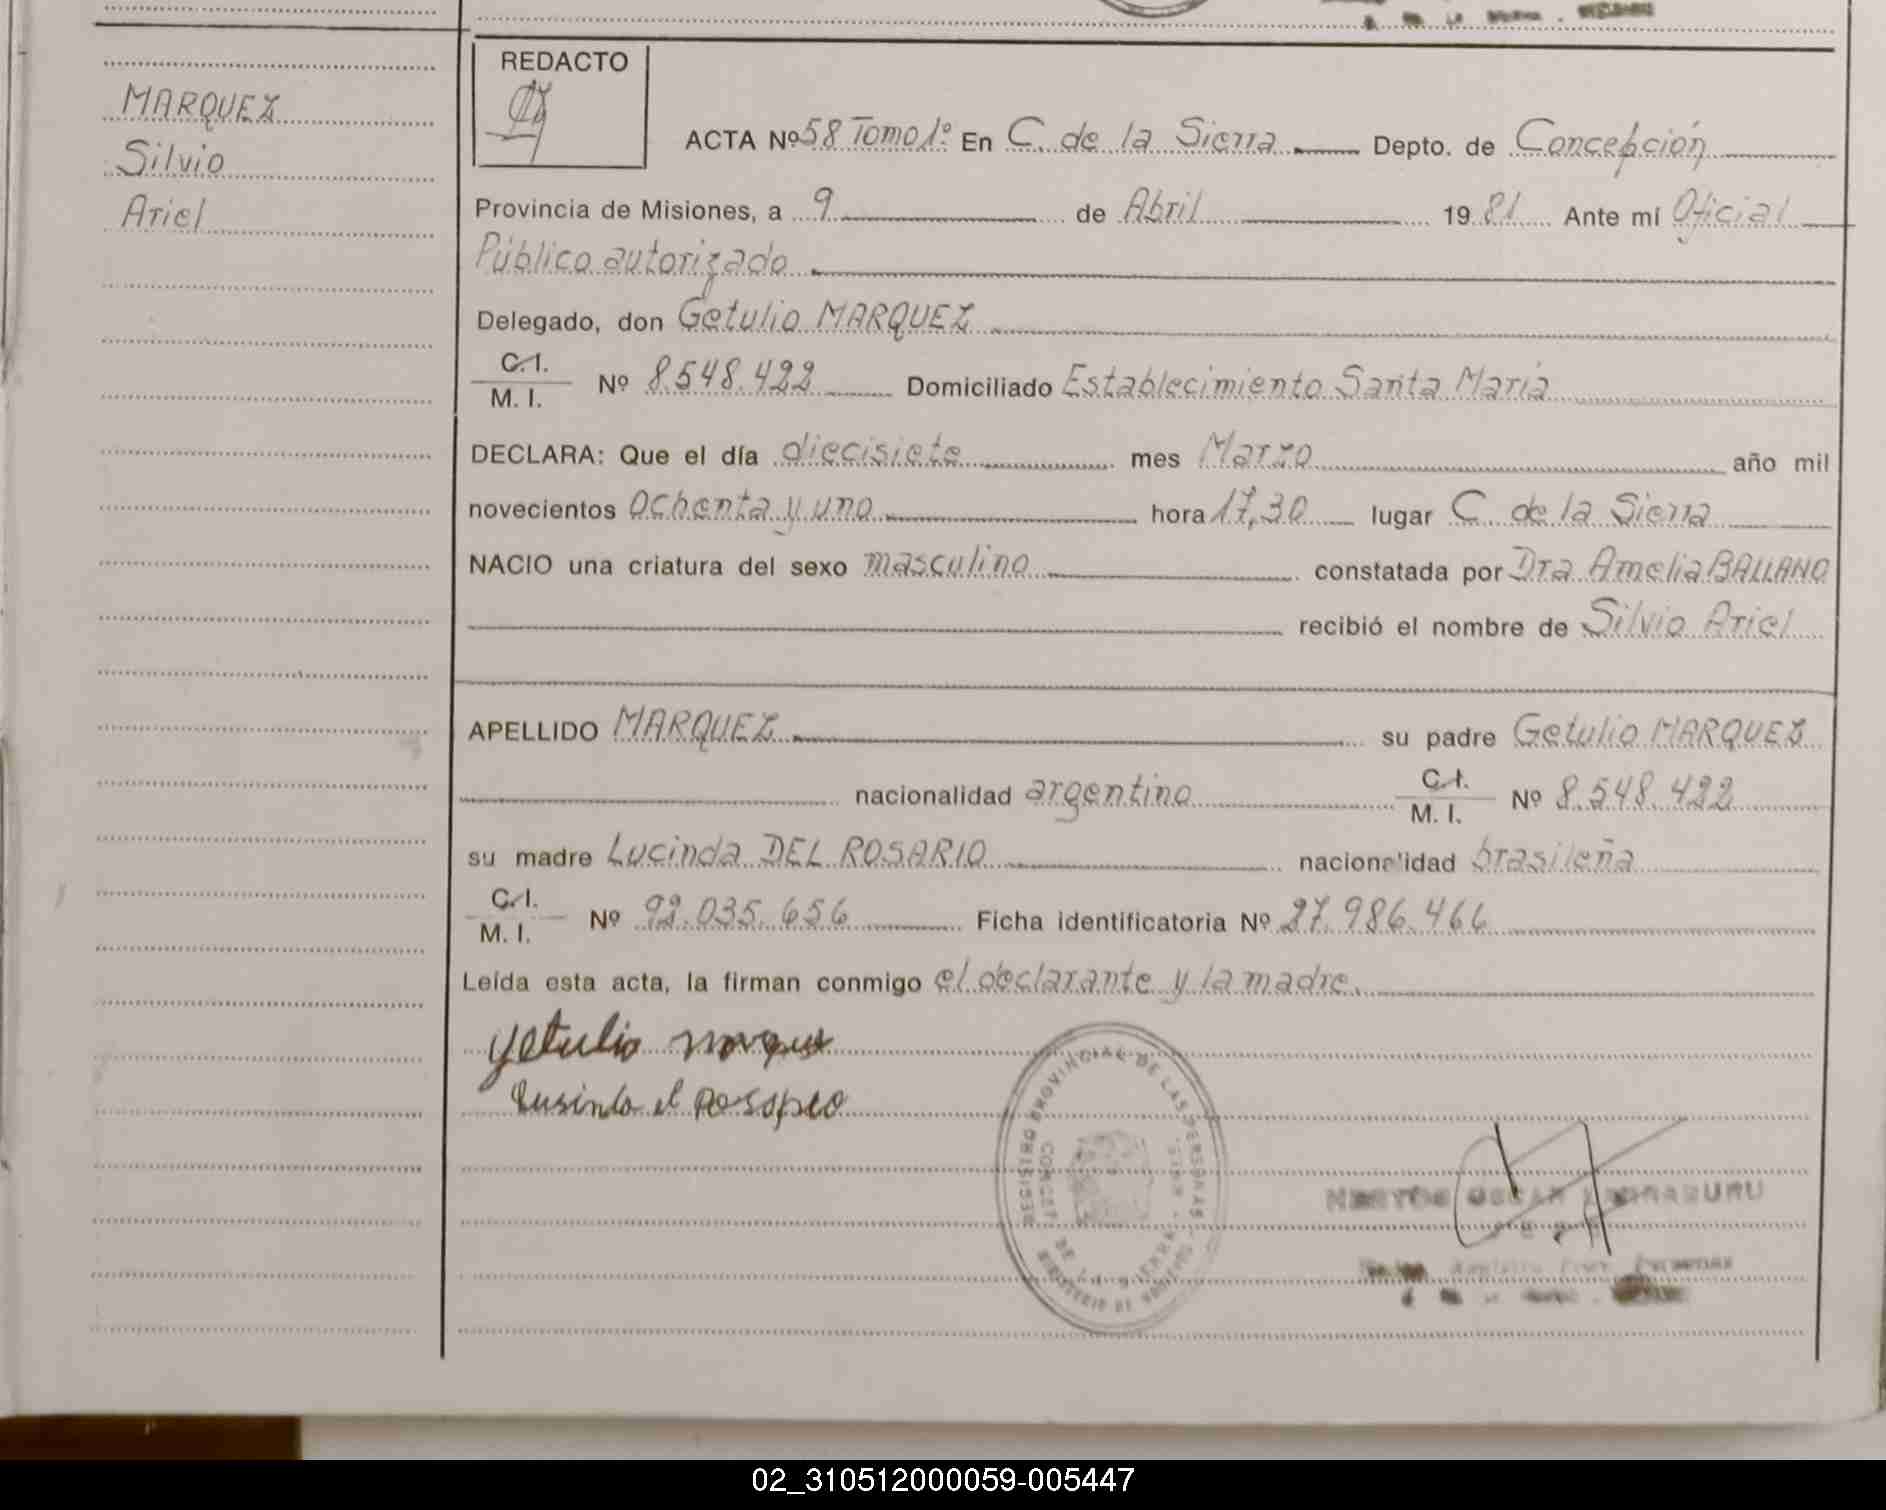 MARQUEZ
Silvio
Ariel
REDACTO
ACTA Nº 58 Tomo 1º En C. de la Sierra Depto. de Concepción
Provincia de Misiones, a 9 de Abril 1981 Ante mí Oficial
Público autorizado
Delegado, don Getulio MARQUEZ
C.I.
M. I. Nº 8.548.422 Domiciliado Establecimiento Santa María
DECLARA: Que el día diecisiete mes Marzo año mil
novecientos ochenta y uno hora 17,30 lugar C. de la Sierra
NACIO una criatura del sexo masculino constatada por Dra Amelia BALLANO
recibió el nombre de Silvio Ariel
APELLIDO MARQUEZ su padre Getulio MARQUEZ
nacionalidad argentino C.I.
M. I. Nº 8.548.422
su madre Lucinda DEL ROSARIO nacionalidad brasileña
C.I.
M. I. Nº 92.035.656 Ficha identificatoria Nº 27.986.466
Leída esta acta, la firman conmigo el declarante y la madre.
REGISTRO PROVINCIAL DE LAS PERSONAS
DE LA SIERRA
MINISTERIO DE GOBIERNO
OSCAR
02_310512000059-005447